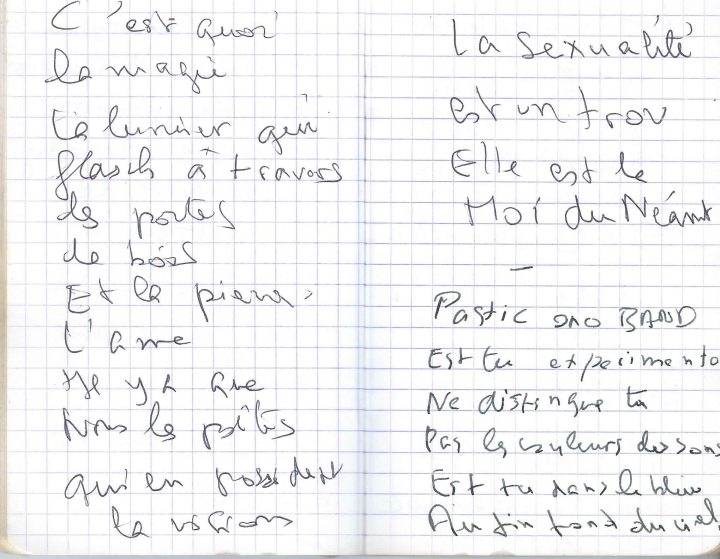 C'est quoi
la magie
La lumier qui
flasch à travers
des portes
de bois
Et la pierre.
L'ame
Il y a que
Nous les pöètes
qui en possident
la visions
La sexualité
est un trou
Elle est le
Moi du Néant
—
Pastic ono BAND
Est tu experimento
Ne distingue ta
Pas les couleurs des sons
Est tu dans le bleu
Au fin fond du ciel